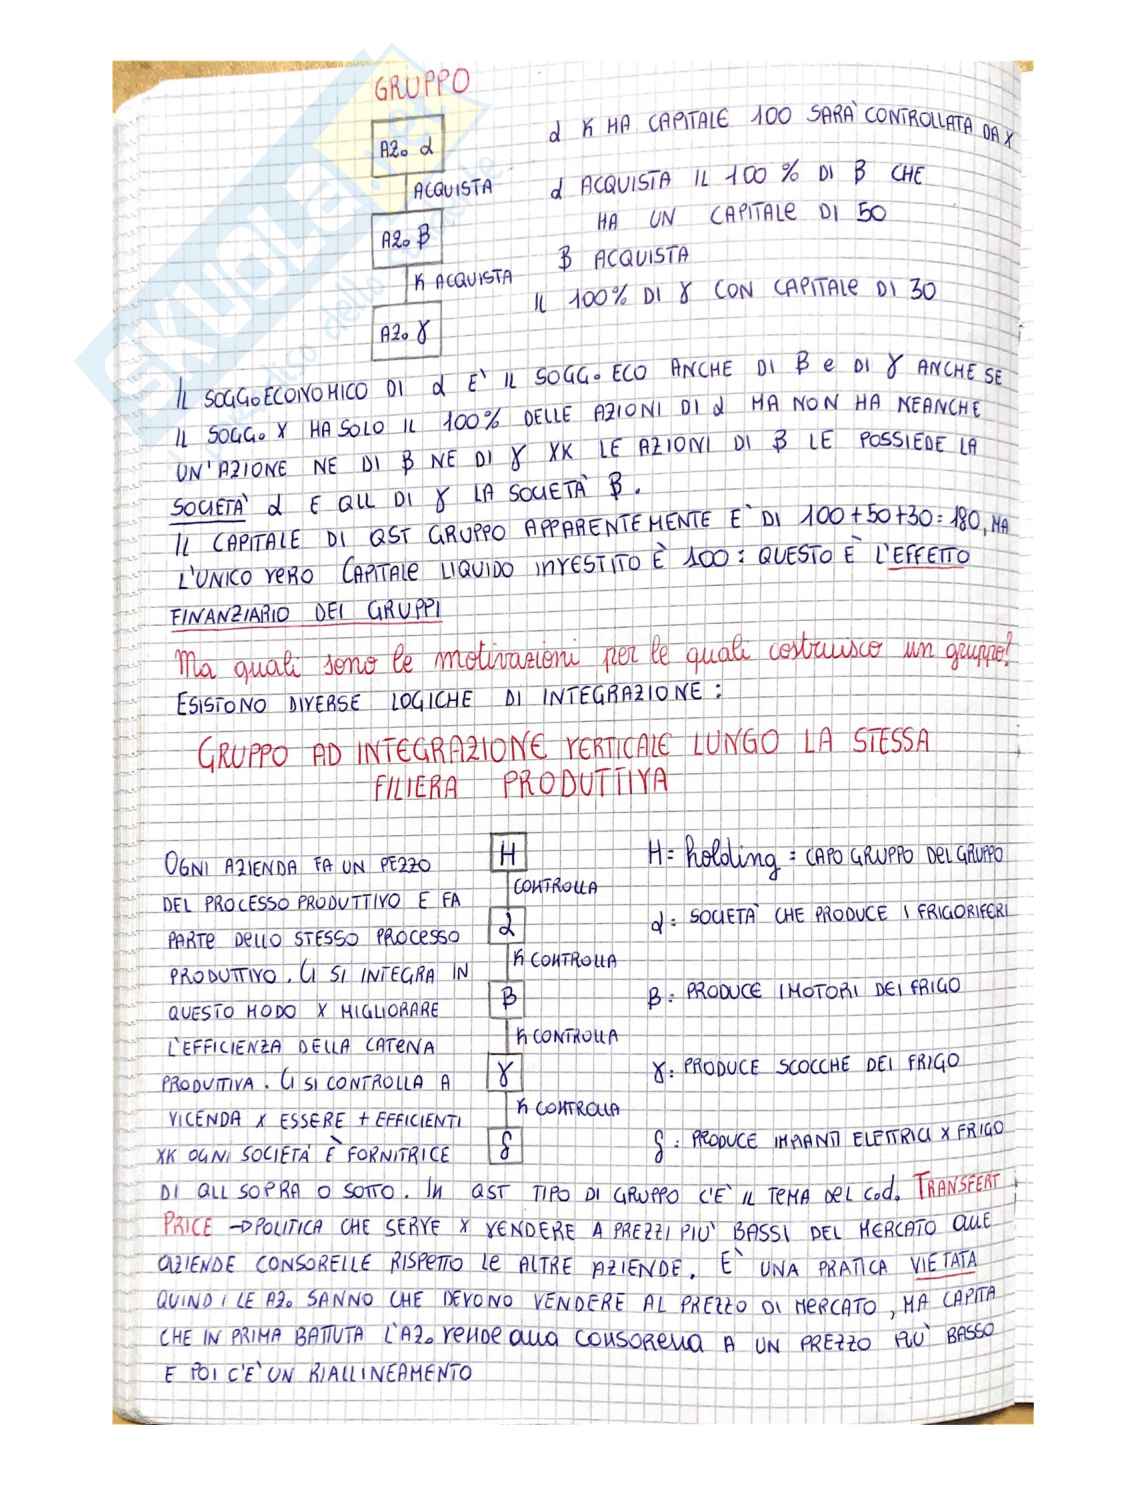 GRUPPO
AZ. α
ACQUISTA
AZ. β
K ACQUISTA
AZ. γ
α K HA CAPITALE 100 SARA' CONTROLLATA DA X
α ACQUISTA IL 100 % DI β CHE
HA UN CAPITALE DI 50
β ACQUISTA
IL 100% DI γ CON CAPITALE DI 30
IL SOGG. ECONOMICO DI α E' IL SOGG. ECO ANCHE DI β e DI γ ANCHE SE
IL SOGG. X HA SOLO IL 100% DELLE AZIONI DI α MA NON HA NEANCHE
UN'AZIONE NE DI β NE DI γ XK LE AZIONI DI β LE POSSIEDE LA
SOCIETA' α E QLL DI γ LA SOCIETA' β.
IL CAPITALE DI QST GRUPPO APPARENTEMENTE E' DI 100+50+30=180, MA
L'UNICO VERO CAPITALE LIQUIDO INVESTITO È 100: QUESTO È L'EFFETTO
FINANZIARIO DEI GRUPPI
Ma quali sono le motivazioni per le quali costruisco un gruppo?
ESISTONO DIVERSE LOGICHE DI INTEGRAZIONE:
GRUPPO AD INTEGRAZIONE VERTICALE LUNGO LA STESSA
FILIERA PRODUTTIVA
OGNI AZIENDA FA UN PEZZO
DEL PROCESSO PRODUTTIVO E FA
PARTE DELLO STESSO PROCESSO
PRODUTTIVO. CI SI INTEGRA IN
QUESTO MODO X MIGLIORARE
L'EFFICIENZA DELLA CATENA
PRODUTIVA. CI SI CONTROLLA A
VICENDA X ESSERE + EFFICIENTI
XK OGNI SOCIETA' È FORNITRICE
H
CONTROLLA
α
K CONTROLLA
β
K CONTROLLA
γ
K CONTROLLA
δ
H = holding = CAPO GRUPPO DEL GRUPPO
α: SOCIETA' CHE PRODUCE I FRIGORIFERI
β: PRODUCE I MOTORI DEI FRIGO
γ: PRODUCE SCOCCHE DEI FRIGO
δ: PRODUCE IMPIANTI ELETTRICI X FRIGO
DI QLL SOPRA O SOTTO. IN QST TIPO DI GRUPPO C'E' IL TEMA DEL cod. TRANSFERT
PRICE → POLITICA CHE SERVE X VENDERE A PREZZI PIU' BASSI DEL MERCATO ALLE
AZIENDE CONSORELLE RISPETTO LE ALTRE AZIENDE. E' UNA PRATICA VIETATA
QUINDI LE AZ. SANNO CHE DEVONO VENDERE AL PREZZO DI MERCATO, MA CAPITA
CHE IN PRIMA BATTUTA L'AZ. VENDE ALLA CONSORELLA A UN PREZZO PIU' BASSO
E POI C'E' UN RIALLINEAMENTO
SKUOLA.net